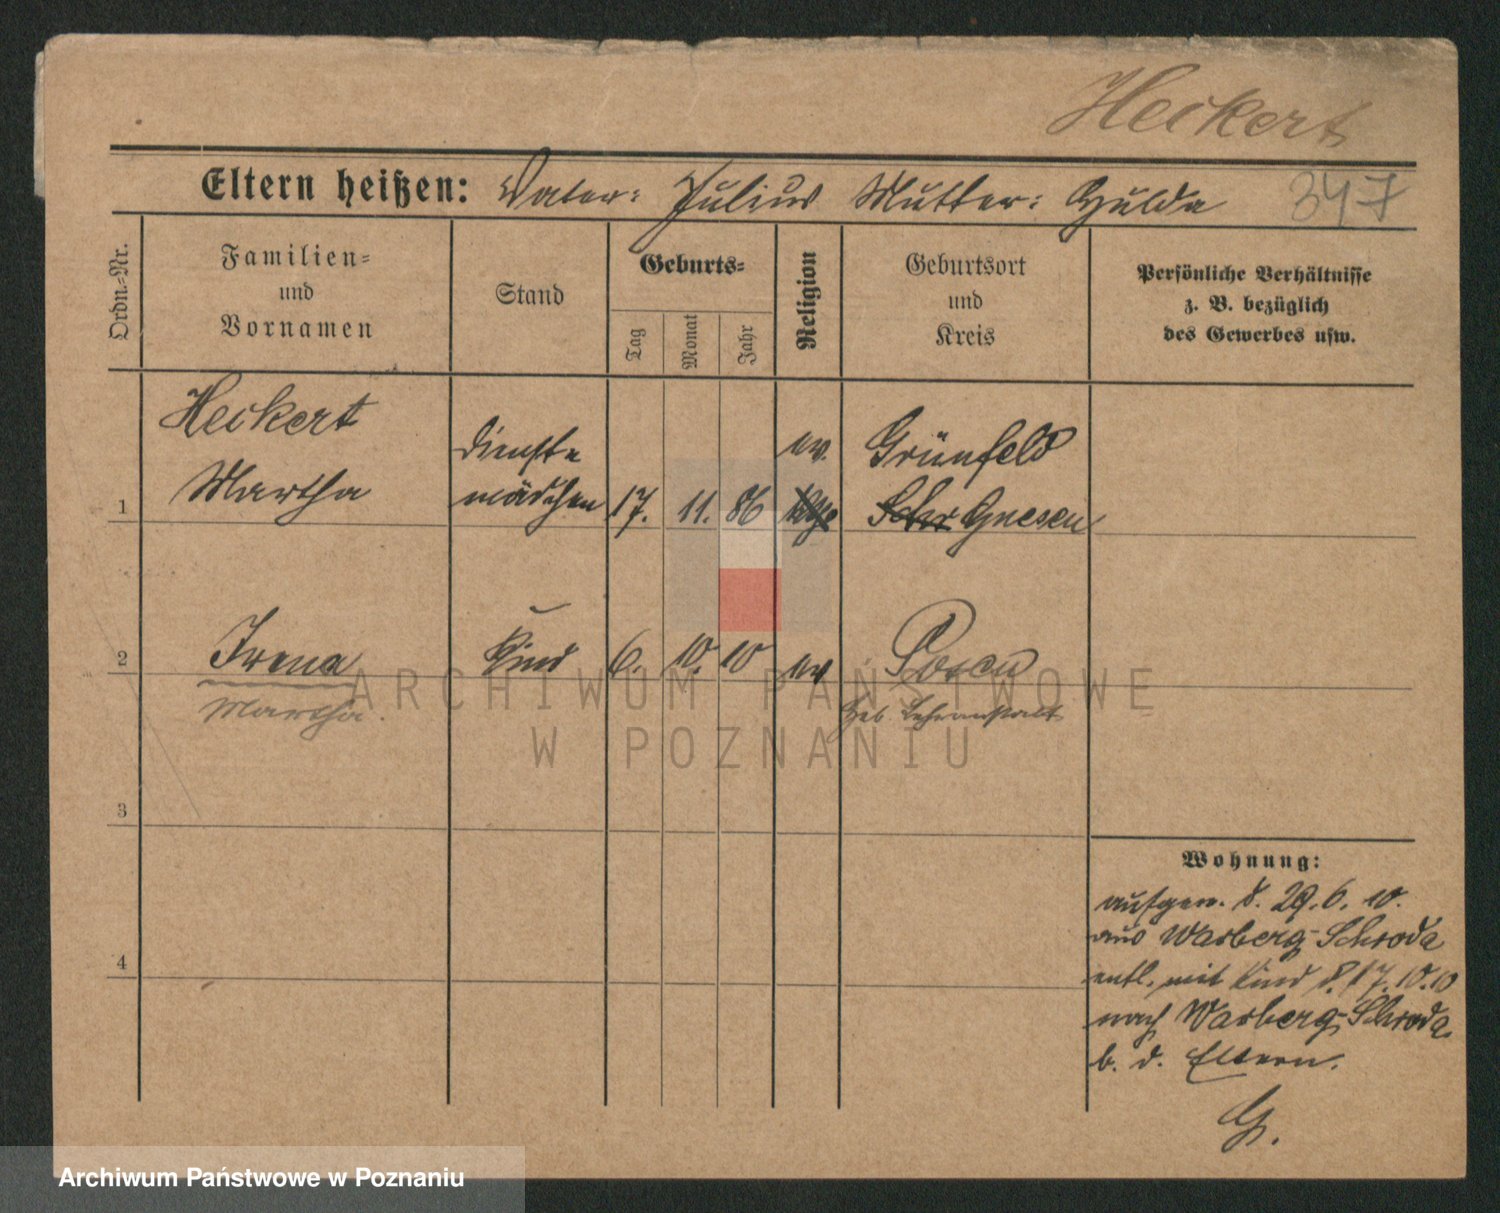 Heckert
Eltern heißen: Vater: Julius Mutter: Hulda 347
Ordn.-Nr.
Familien=
und
Vornamen
Stand
Geburts=
Tag
Monat
Jahr
Religion
Geburtsort
und
Kreis
Persönliche Verhältnisse
z. B. bezüglich
des Gewerbes usw.
Heckert
Martha
Dienst=
mädchen
17. 11. 86
ev.
Grünfeld
Schr Gnesen
1
2
Irena
Martha.
Kind
6. 10. 10
ev
Posen
Heb. Lehranstalt
3
4
Wohnung:
aufgen. d. 29.6.10.
aus Warberg-Schroda
entl. mit Kind d. 17.10.10
nach Warberg-Schroda
b. d. Eltern.
G.
ARCHIWUM PAŃSTWOWE
W POZNANIU
Archiwum Państwowe w Poznaniu